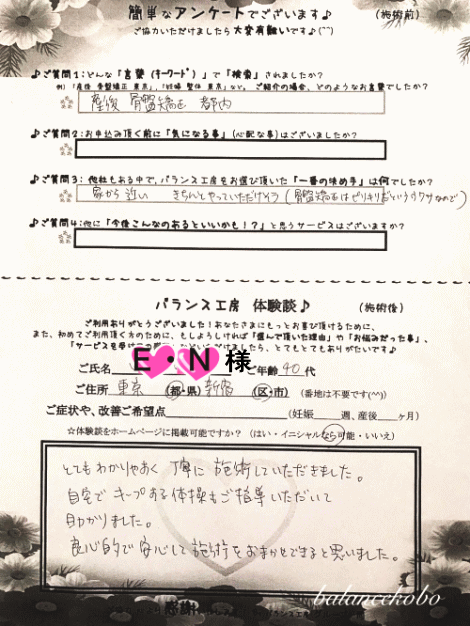 簡単なアンケートでございます♪ (施術前)
ご協力いただけましたら大変有難いです♪(^^)
♪ご質問1:どんな「言葉(キーワード)」で「検索」されましたか?
例)「産後 骨盤矯正 東京」、「妊婦 整体 東京」など。 ご紹介の場合、どのようなお言葉でしたか?
産後 骨盤矯正 都内
♪ご質問2:お申込み頂く前に「気になる事」(心配な事)はございましたか?
♪ご質問3:他社もある中で、バランス工房をお選び頂いた「一番の決め手」は何でしたか?
家から近い きちんとやっていただけそう(骨盤矯正はピンキリだというウワサなので)
♪ご質問4:他に「今後こんなのあるといいかも!?」と思うサービスはございますか?
バランス工房 体験談♪ (施術後)
ご利用ありがとうございました!あなたさまにもっとお喜び頂けるために、
また、初めてご利用頂く方のために、もしよろしければ「選んで頂いた理由」や「お悩みだった事」、
「サービスを受けて
いただけましたら、とてもとてもありがたいです♪
ご氏名 E・N様 ご年齢 40代
ご住所 東京 (都・県) 新宿 (区・市) (番地は不要です(^^))
ご症状や、改善ご希望点 (妊娠 週、産後 ヶ月)
☆体験談をホームページに掲載可能ですか? (はい・イニシャルなら可能・いいえ)
とてもわかりやすく 丁寧に 施術していただきました。
自宅で キープする体操もご指導いただいて
助かりました。
良心的で 安心して 施術を おまかせできると思いました。
感謝
balancekobo